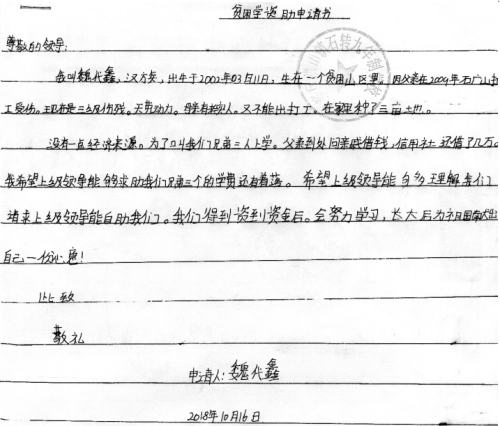 贫困学资助申请书
尊敬的领导:
我叫魏代鑫,汉方族,出生于2002年03月11日,生在一个贫困山区里,因父亲在2009年石广山打
工受伤。现在是三级伤残。夫劳动力。母亲有病人。又不能出打工,在家里种了三亩土地。
没有一点经济来源。为了叫我们兄弟三人上学。父亲到处问亲戚借钱,信用社还借了几万。
我希望上级领导能够求助我们兄弟三个的学费还有着落。希望上级领导能自多理解我们
请求上级领导能自助我们。我们得到资到资金后。会努力学习,长大后为祖国献出
自己一份心意!
此致
敬礼
申请人:魏代鑫
2018年10月16日
石转九年制